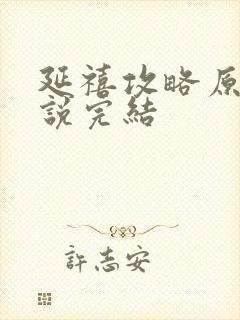 延禧攻略原
說完結
許志安